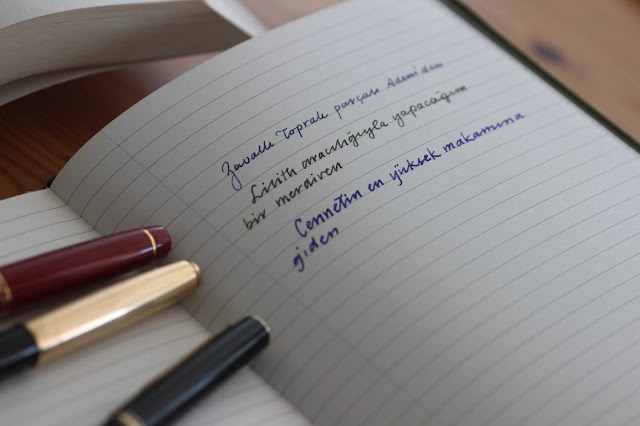 Zavallı Toprak parçası Adem'den
Lilith aracılığıyla yapacağım
bir merdiven
Cennetin en yüksek makamına
giden